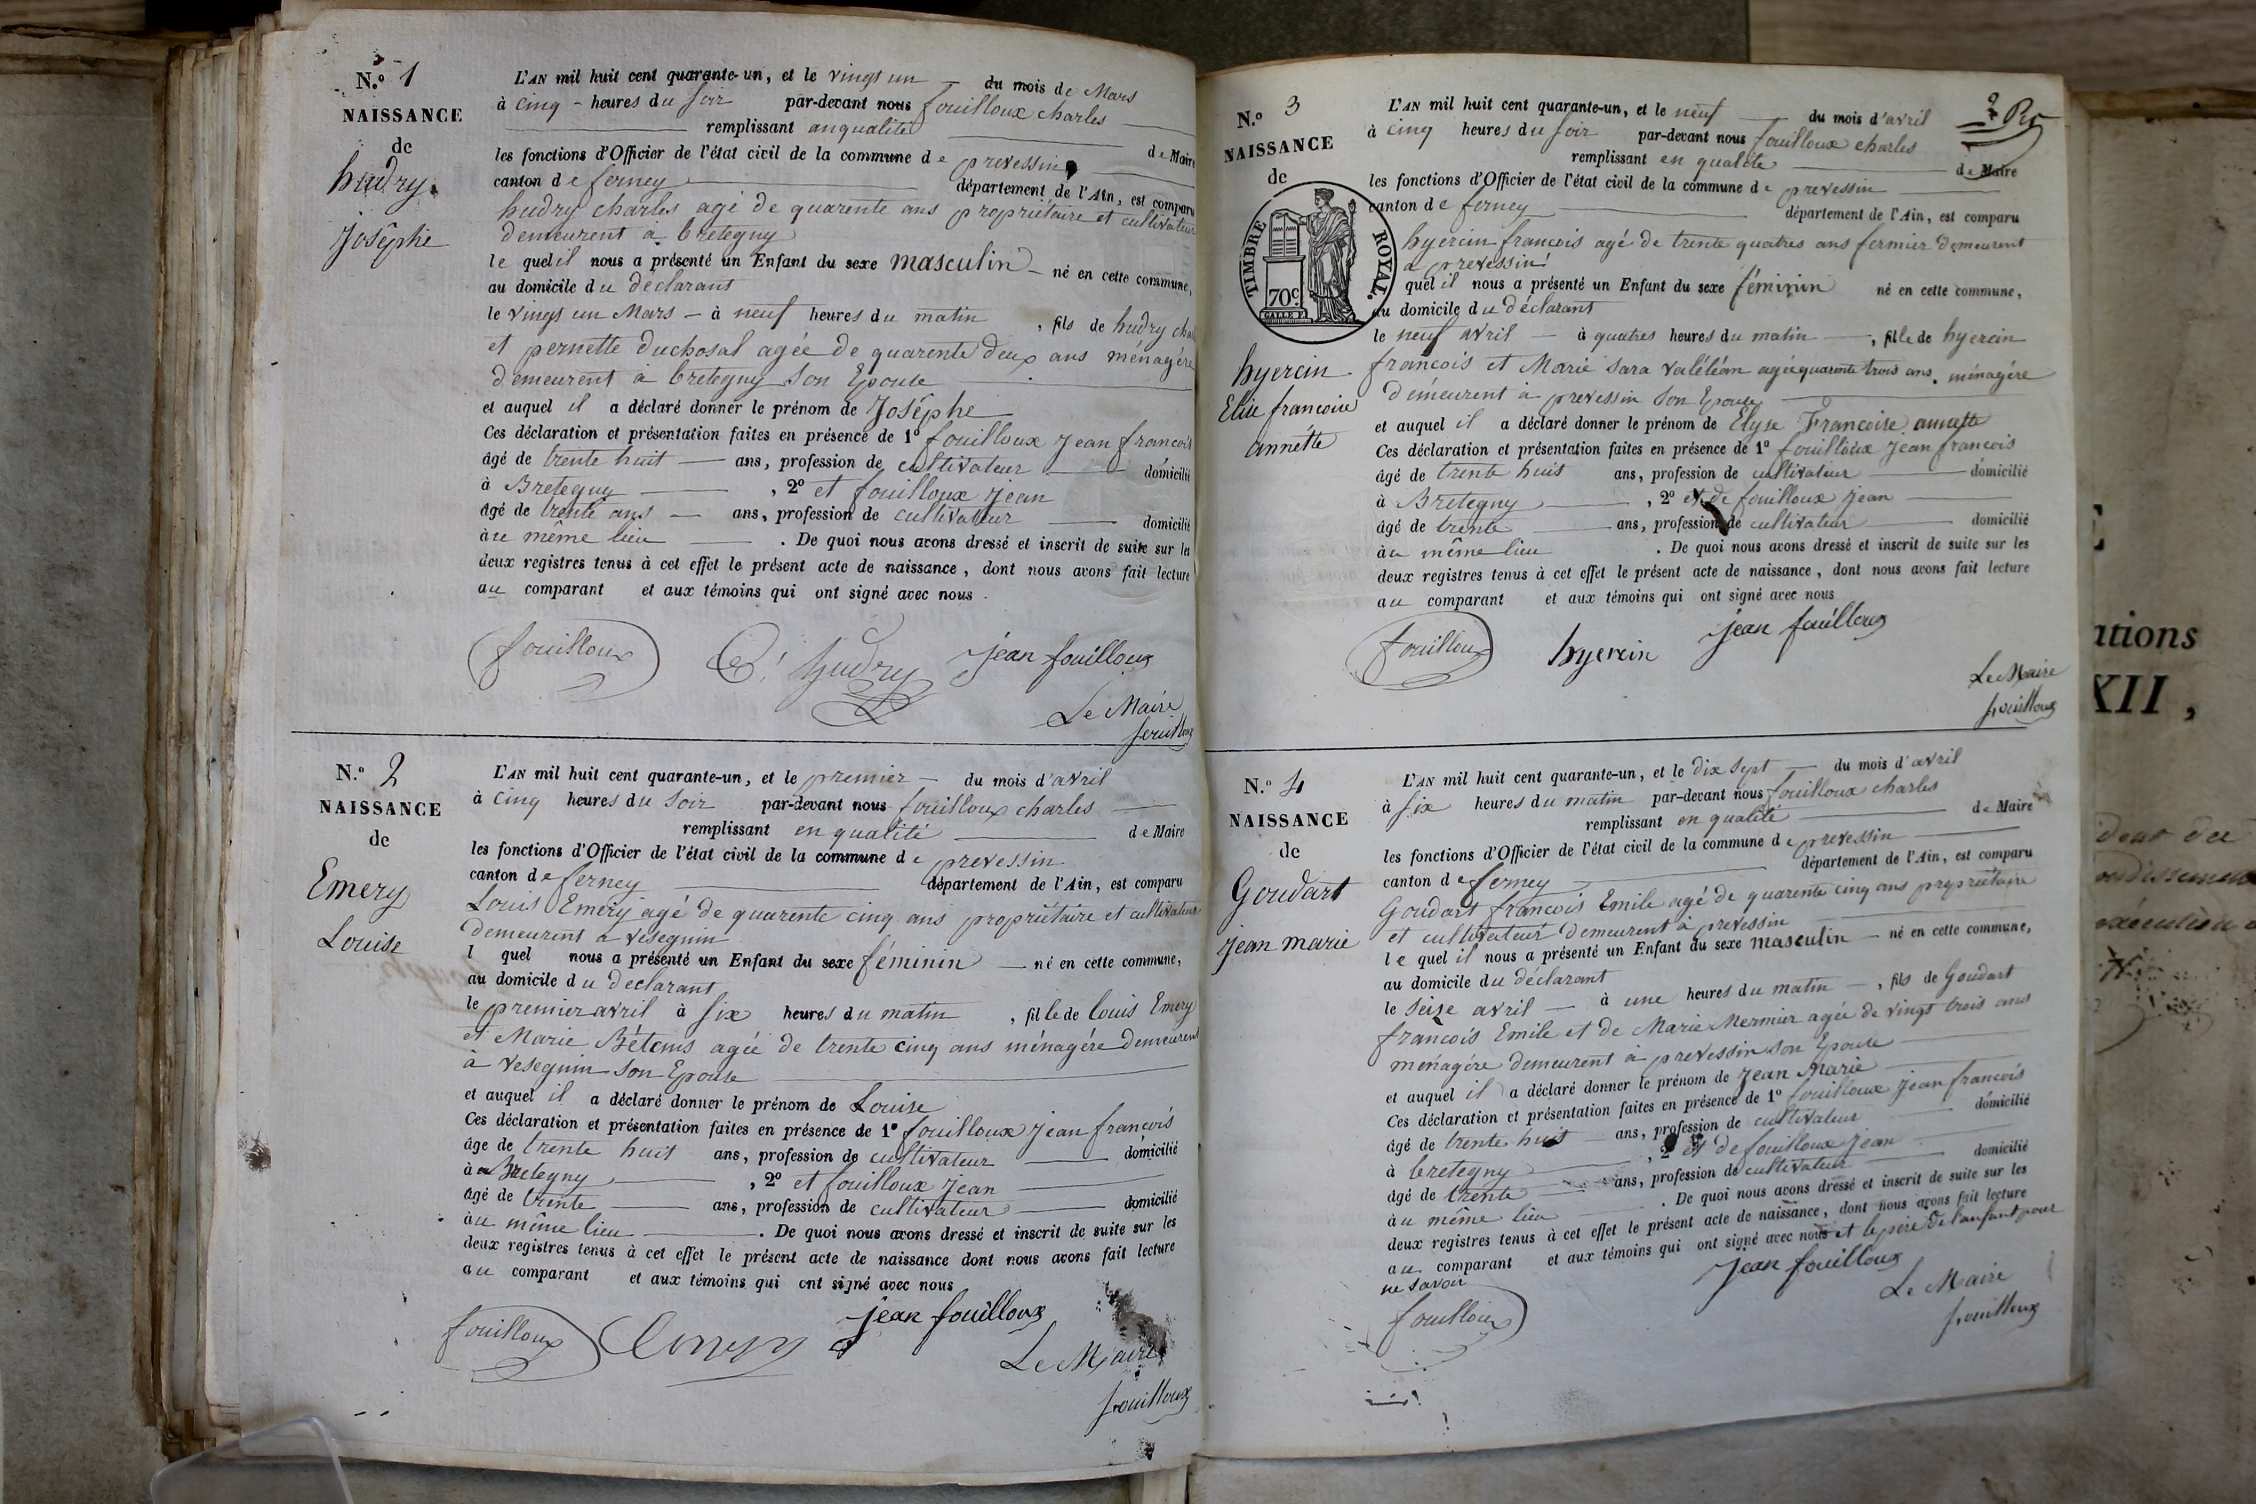 N.º 1
NAISSANCE
de
hudry
Joséphe
L'AN mil huit cent quarante-un, et le vingt un du mois de Mars
à cinq heures du soir par-devant nous fouilloux charles
remplissant enqualité de Maire
les fonctions d'Officier de l'état civil de la commune de prevessin
canton de ferney département de l'Ain, est comparu
hudry charles agé de quarente ans propriétaire et cultivateur
demeurent a bretegny
le quel il nous a présenté un Enfant du sexe masculin né en cette commune,
au domicile du declarant
le vingt un Mars à neuf heures du matin , fils de hudry
et pernette duchosal agée de quarente deux ans ménagére
demeurent à bretegny son Epouse
et auquel il a déclaré donner le prénom de Joséphe
Ces déclaration et présentation faites en présence de 1º fouilloux jean francois
âgé de trente huit ans, profession de cultivateur domicilié
à Bretegny , 2º et fouilloux jean
âgé de trente ans ans, profession de cultivateur domicilié
àu même lieu . De quoi nous avons dressé et inscrit de suite sur les
deux registres tenus à cet effet le présent acte de naissance, dont nous avons fait lecture
au comparant et aux témoins qui ont signé avec nous.
fouilloux hudry jean fouilloux
Le Maire
fouilloux
N.º 2
NAISSANCE
de
Emery
Louise
L'AN mil huit cent quarante-un, et le premier du mois d'avril
à cinq heures du soir par-devant nous fouilloux charles
remplissant en qualité de Maire
les fonctions d'Officier de l'état civil de la commune de prevessin
canton de ferney département de l'Ain, est comparu
Louis Emery agé de quarente cinq ans propriétaire et cultivateur
demeurent a vesegnin
l quel nous a présenté un Enfant du sexe féminin né en cette commune,
au domicile du declarant
le premier avril à six heures du matin , fille de louis Emery
et Marie Bétems agée de trente cinq ans ménagére demeurent
à vesegnin son Epouse
et auquel il a déclaré donner le prénom de Louise
Ces déclaration et présentation faites en présence de 1º fouilloux jean francois
âgé de trente huit ans, profession de cultivateur domicilié
à Bretegny , 2º et fouilloux jean
âgé de trente ans, profession de cultivateur domicilié
àu même lieu . De quoi nous avons dressé et inscrit de suite sur les
deux registres tenus à cet effet le présent acte de naissance dont nous avons fait lecture
au comparant et aux témoins qui ont signé avec nous
fouilloux Emery jean fouilloux
Le Maire
fouilloux
N.º 3
NAISSANCE
de
TIMBRE ROYAL.
70c
hyercin
Elise francoise
annétte
L'AN mil huit cent quarante-un, et le neuf du mois d'avril
à cinq heures du soir par-devant nous fouilloux charles
remplissant en qualité de Maire
les fonctions d'Officier de l'état civil de la commune de prevessin
canton de ferney département de l'Ain, est comparu
hyercin francois agé de trente quatres ans fermier demeurent
a prevessin
quel il nous a présenté un Enfant du sexe féminin né en cette commune,
au domicile du déclarant
le neuf avril à quatres heures du matin , fille de hyercin
francois et Marie sara valéléan agée quarente trois ans ménagére
démeurent à prevessin son Epouse
et auquel il a déclaré donner le prénom de Elyse Francoise annette
Ces déclaration et présentation faites en présence de 1º fouilloux jean francois
âgé de trente huit ans, profession de cultivateur domicilié
à Bretegny , 2º et de fouilloux jean
âgé de trente ans, profession de cultivateur domicilié
àu même lieu . De quoi nous avons dressé et inscrit de suite sur les
deux registres tenus à cet effet le présent acte de naissance, dont nous avons fait lecture
au comparant et aux témoins qui ont signé avec nous
fouilloux hyercin jean fouilloux
Le Maire
fouilloux
N.º 4
NAISSANCE
de
Goudart
jean marie
L'AN mil huit cent quarante-un, et le dix sept du mois d'avril
à six heures du matin par-devant nous fouilloux charles
remplissant en qualité de Maire
les fonctions d'Officier de l'état civil de la commune de prevessin
canton de ferney département de l'Ain, est comparu
Goudart francois Emile agé de quarente cinq ans propriétaire
et cultivateur demeurent à prevessin
le quel il nous a présenté un Enfant du sexe masculin né en cette commune,
au domicile du déclarant
le seise avril à une heures du matin , fils de Goudart
francois Emile et de Marie Mermier agée de vingt trois ans
ménagére demeurent à prevessin son Epouse
et auquel il a déclaré donner le prénom de jean Marie
Ces déclaration et présentation faites en présence de 1º fouilloux jean francois
âgé de trente huit ans, profession de cultivateur domicilié
à bretegny , 2º et de fouilloux jean
âgé de trente ans, profession de cultivateur domicilié
àu même lieu . De quoi nous avons dressé et inscrit de suite sur les
deux registres tenus à cet effet le présent acte de naissance, dont nous avons fait lecture
au comparant et aux témoins qui ont signé avec nous et le pére de l'enfant pour
ne savoir
fouilloux jean fouilloux
Le Maire
fouilloux
ations
XII,